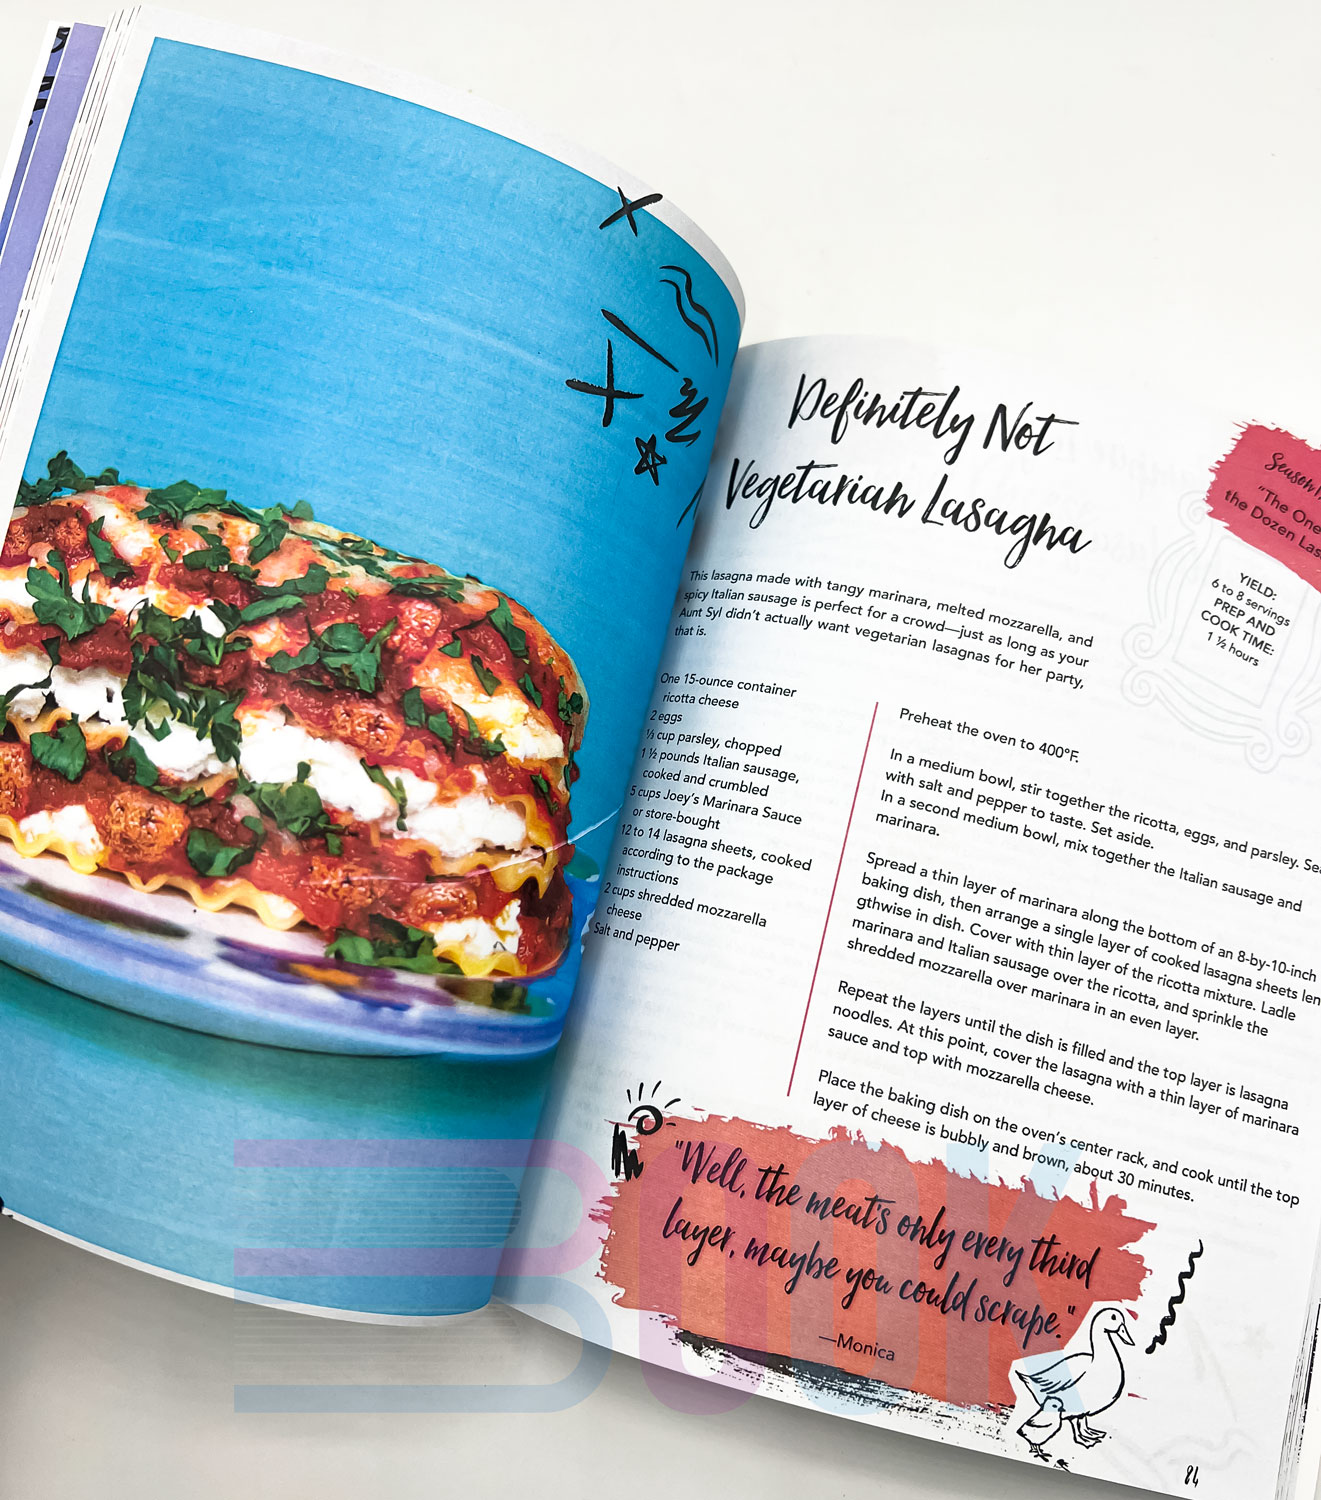 Definitely Not
Vegetarian Lasagna
This lasagna made with tangy marinara, melted mozzarella, and
spicy Italian sausage is perfect for a crowd—just as long as your
Aunt Syl didn't actually want vegetarian lasagnas for her party,
that is.
Season
"The One
the Dozen
YIELD:
6 to 8 servings
PREP AND
COOK TIME:
1 ½ hours
One 15-ounce container
ricotta cheese
2 eggs
⅓ cup parsley, chopped
1 ½ pounds Italian sausage,
cooked and crumbled
5 cups Joey's Marinara Sauce
or store-bought
12 to 14 lasagna sheets, cooked
according to the package
instructions
2 cups shredded mozzarella
cheese
Salt and pepper
Preheat the oven to 400°F.
In a medium bowl, stir together the ricotta, eggs, and parsley.
with salt and pepper to taste. Set aside.
In a second medium bowl, mix together the Italian sausage and
marinara.
Spread a thin layer of marinara along the bottom of an 8-by-10-inch
baking dish, then arrange a single layer of cooked lasagna sheets len
gthwise in dish. Cover with thin layer of the ricotta mixture. Ladle
marinara and Italian sausage over the ricotta, and sprinkle the
shredded mozzarella over marinara in an even layer.
Repeat the layers until the dish is filled and the top layer is lasagna
noodles. At this point, cover the lasagna with a thin layer of marinara
sauce and top with mozzarella cheese.
Place the baking dish on the oven's center rack, and cook until the top
layer of cheese is bubbly and brown, about 30 minutes.
"Well, the meat's only every third
layer, maybe you could scrape."
—Monica
84
BOOK